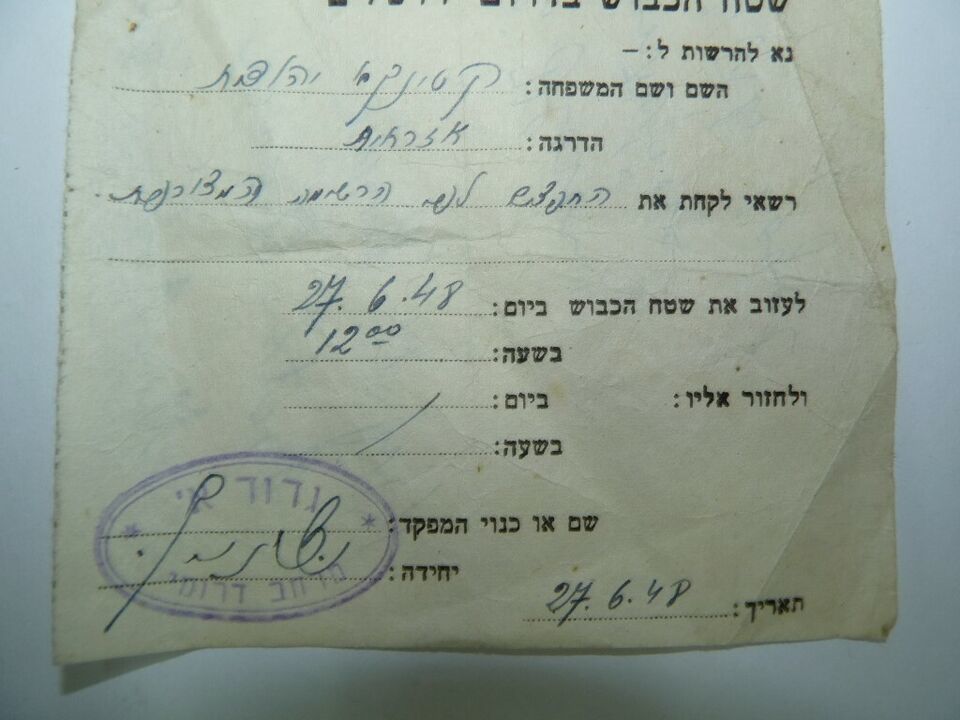 שטח הכבוש בדרום ירושלים
נא להרשות ל: —
השם ושם המשפחה: קטינקא יהודית
הדרגה: אזרחית
רשאי לקחת את החפצים לפי הרשימה המצורפת
לעזוב את שטח הכבוש ביום: 27.6.48
בשעה: 12⁰⁰
ולחזור אליו: ביום: /
בשעה:
גדוד
שם או כנוי המפקד:
יחידה:
מרחב דרומי
תאריך: 27.6.48